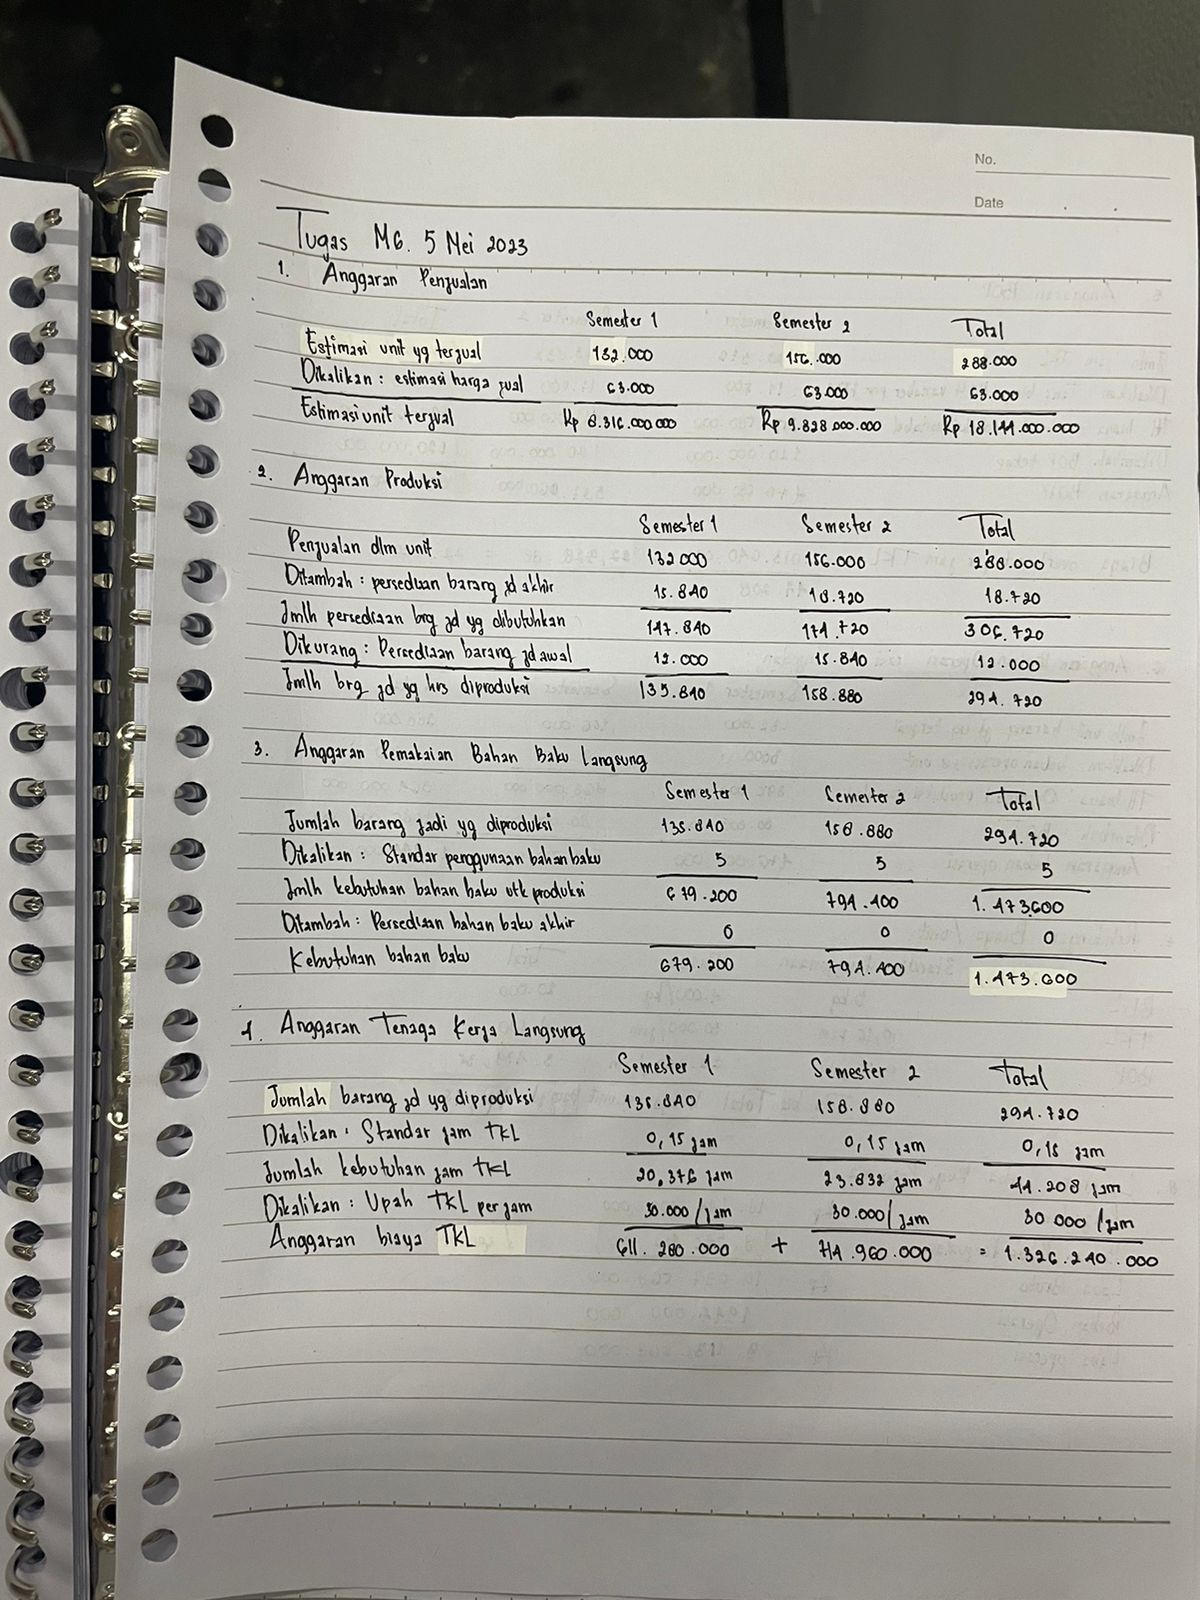 No.
Date
Tugas M6. 5 Mei 2023
1. Anggaran Penjualan
Semester 1 Semester 2 Total
Estimasi unit yg terjual 132.000 156.000 288.000
Dikalikan : estimasi harga jual 63.000 63.000 63.000
Estimasi unit terjual Rp 8.316.000.000 Rp 9.828.000.000 Rp 18.144.000.000
2. Anggaran Produksi
Semester 1 Semester 2 Total
Penjualan dlm unit 132.000 156.000 288.000
Ditambah : persediaan barang jd akhir 15.840 18.720 18.720
Jmlh persediaan brg jd yg dibutuhkan 147.840 174.720 306.720
Dikurang : Persediaan barang jd awal 12.000 15.840 12.000
Jmlh brg jd yg hrs diproduksi 135.840 158.880 294.720
3. Anggaran Pemakaian Bahan Baku Langsung
Semester 1 Semester 2 Total
Jumlah barang jadi yg diproduksi 135.840 158.880 294.720
Dikalikan : Standar penggunaan bahan baku 5 5 5
Jmlh kebutuhan bahan baku utk produksi 679.200 794.400 1.473.600
Ditambah : Persediaan bahan baku akhir 0 0 0
Kebutuhan bahan baku 679.200 794.400 1.473.600
4. Anggaran Tenaga Kerja Langsung
Semester 1 Semester 2 Total
Jumlah barang jd yg diproduksi 135.840 158.880 294.720
Dikalikan : Standar jam TKL 0,15 jam 0,15 jam 0,15 jam
Jumlah kebutuhan jam TKL 20,376 jam 23.832 jam 44.208 jam
Dikalikan : Upah TKL per jam 30.000/jam 30.000/jam 30 000 /jam
Anggaran biaya TKL 611. 280.000 + 714.960.000 = 1.326.240.000